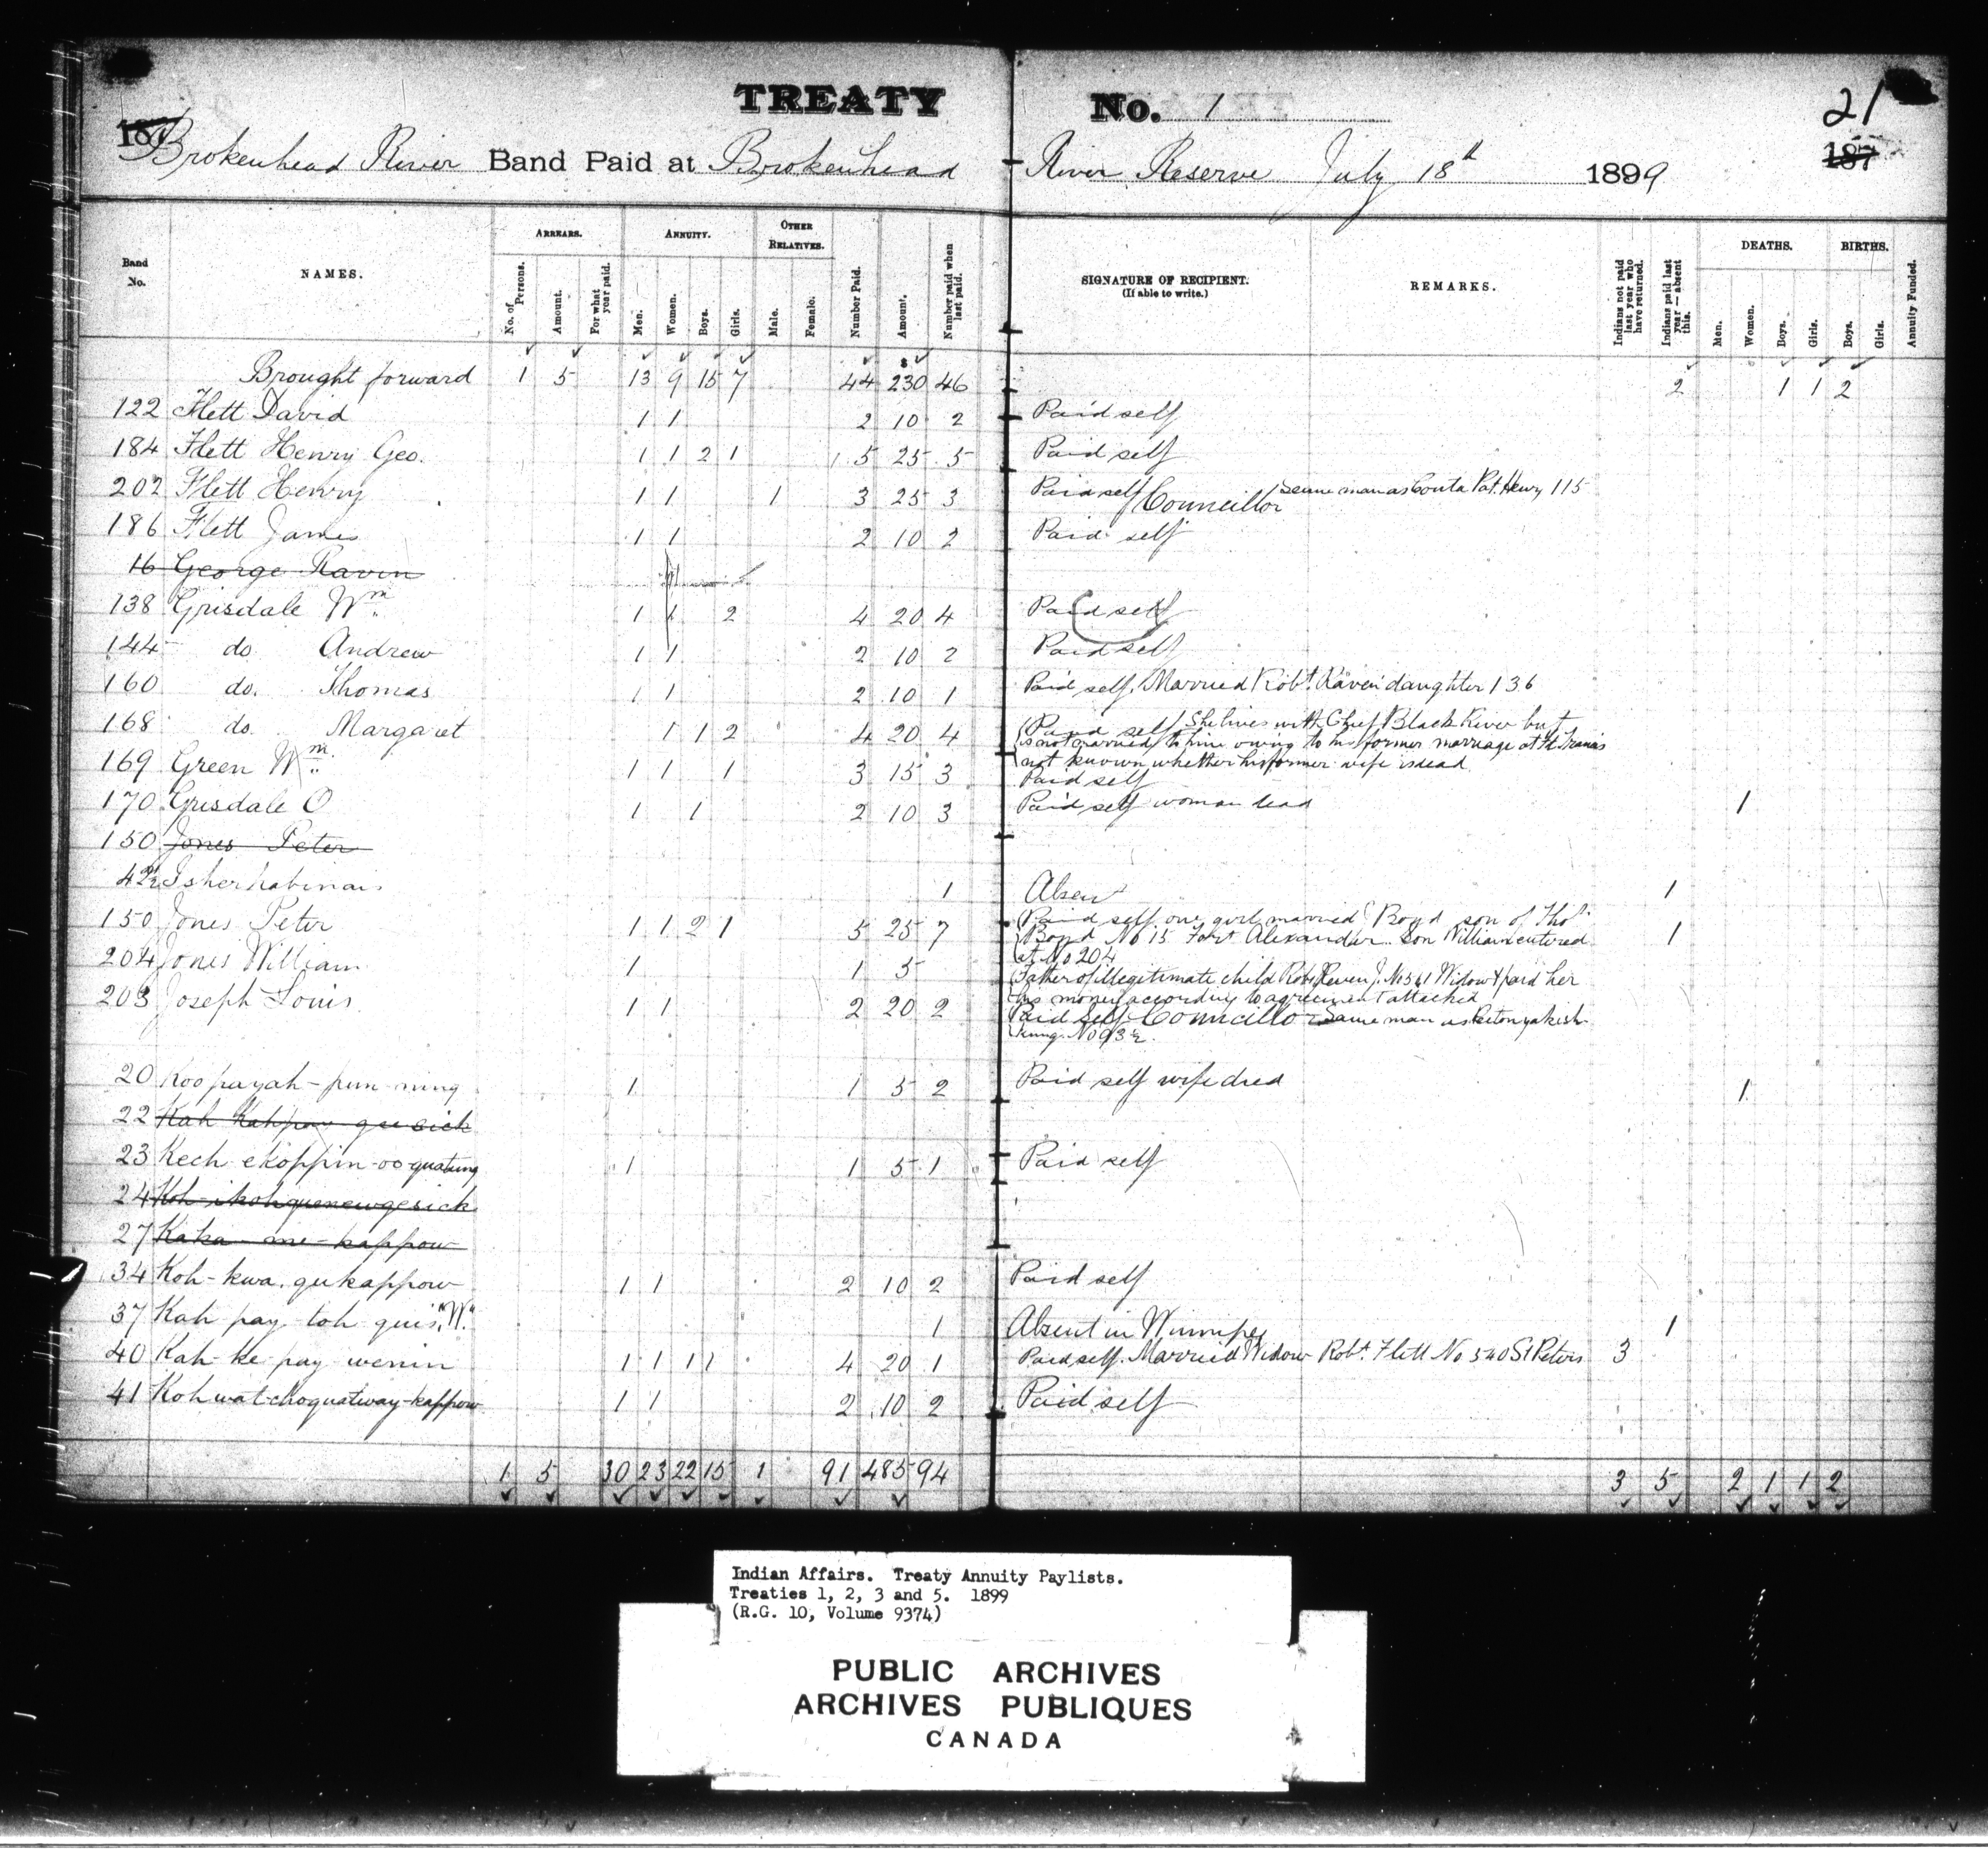 TREATY No. 1
21
187
187
Brokenhead River Band Paid at Brokenhead River Reserve July 18th 1899
Band No. NAMES. ARREARS. No. of Persons. Amount. For what year paid. ANNUITY. Men. Women. Boys. Girls. OTHER RELATIVES. Male. Female. Number Paid. Amount. Number paid when last paid. SIGNATURE OF RECIPIENT. (If able to write.) REMARKS. Indians not paid last year who have returned. Indians paid last year—absent this. DEATHS. Men. Women. Boys. Girls. BIRTHS. Boys. Girls. Annuity Funded.
Brought forward 1 5 13 9 15 7 44 $230 46 2 1 1 2
122 Flett David 1 1 2 10 2 Paid self
184 Flett Henry Geo. 1 1 2 1 5 25 5 Paid self
202 Flett Henry 1 1 1 3 25 3 Paid self Councillor Same man as Pat. Henry 115
186 Flett James 1 1 2 10 2 Paid self
16 George Raven
138 Grisdale Wm. 1 1 2 4 20 4 Paid self
144 do Andrew 1 1 2 10 2 Paid self
160 do. Thomas 1 1 2 10 1 Paid self. Married Robt. Raven daughter 136
168 do. Margaret 1 1 2 4 20 4 Paid self She lives with Chief Black River but
is not married to him owing to his former marriage at Ft Francis
not known whether his former wife is dead
169 Green Wm. 1 1 1 3 15 3 Paid self
170 Grisdale O 1 1 2 10 3 Paid self woman dead 1
150 Jones Peter
42½ Isherkabinais 1 Absent 1
150 Jones Peter 1 1 2 1 5 25 7 Paid self one girl married Boyd son of Thos
Boyd No 15 Fort Alexander. Son William entered 1
at No 204
204 Jones William 1 1 5 Father of illegitimate child Robt Raven J. No 561 Widow & paid her
his money according to agreement attached
203 Joseph Louis 1 1 2 20 2 Paid self Councillor Same man as
No 93½.
20 Koopayah-pun-ning 1 1 5 2 Paid self wife died 1
22 Kah Kahpow gee sick
23 Kech ekoppin-oo-quatung 1 1 5 1 Paid self
24 Koh-ikohquenewgesick
27 Kaka-me-kappow
34 Koh-kwa.gukappow 1 1 2 10 2 Paid self
37 Kah pay toh quis "W." 1 Absent in Winnipeg 1
40 Kah-ke-pay-wenin 1 1 1 1 4 20 1 Paid self. Married Widow Robt. Flett No 540 St Peters 3
41 Kohwatchoquatway-kappow 1 1 2 10 2 Paid self
1 5 30 23 22 15 1 91 485 94 3 5 2 1 1 2
Indian Affairs. Treaty Annuity Paylists.
Treaties 1, 2, 3 and 5. 1899
(R.G. 10, Volume 9374)
PUBLIC ARCHIVES
ARCHIVES PUBLIQUES
CANADA